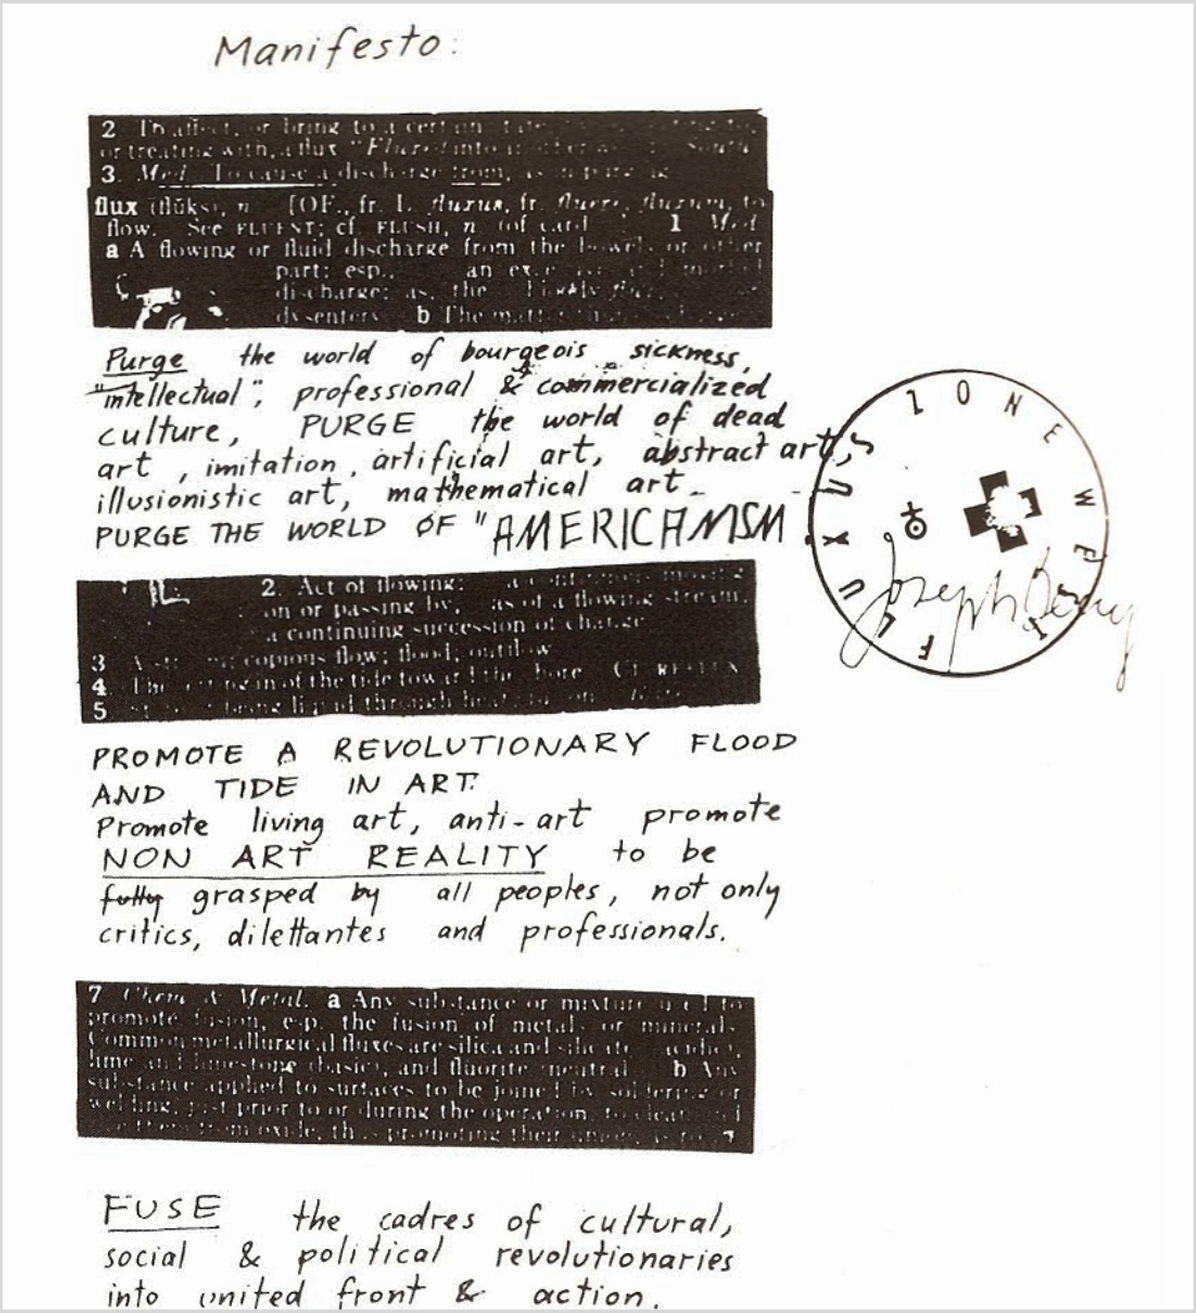 Manifesto:
2 To affect, or bring to a certain
or treating with, a flux "
3. Med. To cause a discharge from, as in purging
flux (flŭks), n. [OF., fr. L. fluxus, fr. fluere, fluxum, to
flow. See FLUENT; cf. FLUSH, n. (of cards).] 1 Med.
a A flowing or fluid discharge from the bowels or other
part; esp., an excessive and morbid
discharge; as, the bloody flux, or
dysentery. b The matter
Purge the world of bourgeois sickness,
"intellectual", professional & commercialized
culture, PURGE the world of dead
art, imitation, artificial art, abstract art,
illusionistic art, mathematical art,
PURGE THE WORLD OF "AMERICANISM
FLUXUS ZONE WEST
Joseph Beuys
2. Act of flowing: a continuous moving
on or passing by, as of a flowing stream;
a continuing succession of changes
3 A stream; copious flow; flood; outflow
4 The setting in of the tide toward the shore. Cf. REFLUX
5 State of being liquid through heat; fusion.
PROMOTE A REVOLUTIONARY FLOOD
AND TIDE IN ART.
Promote living art, anti-art promote
NON ART REALITY to be
fully grasped by all peoples, not only
critics, dilettantes and professionals.
7 Chem. & Metal. a Any substance or mixture used to
promote fusion, esp. the fusion of metals or minerals.
Common metallurgical fluxes are silica and silicates (acidic),
lime and limestone (basic), and fluorite (neutral). b Any
substance applied to surfaces to be joined by soldering or
welding, just prior to or during the operation, to clean and
free them from oxide, thus promoting their union, as
FUSE the cadres of cultural,
social & political revolutionaries
into united front & action.